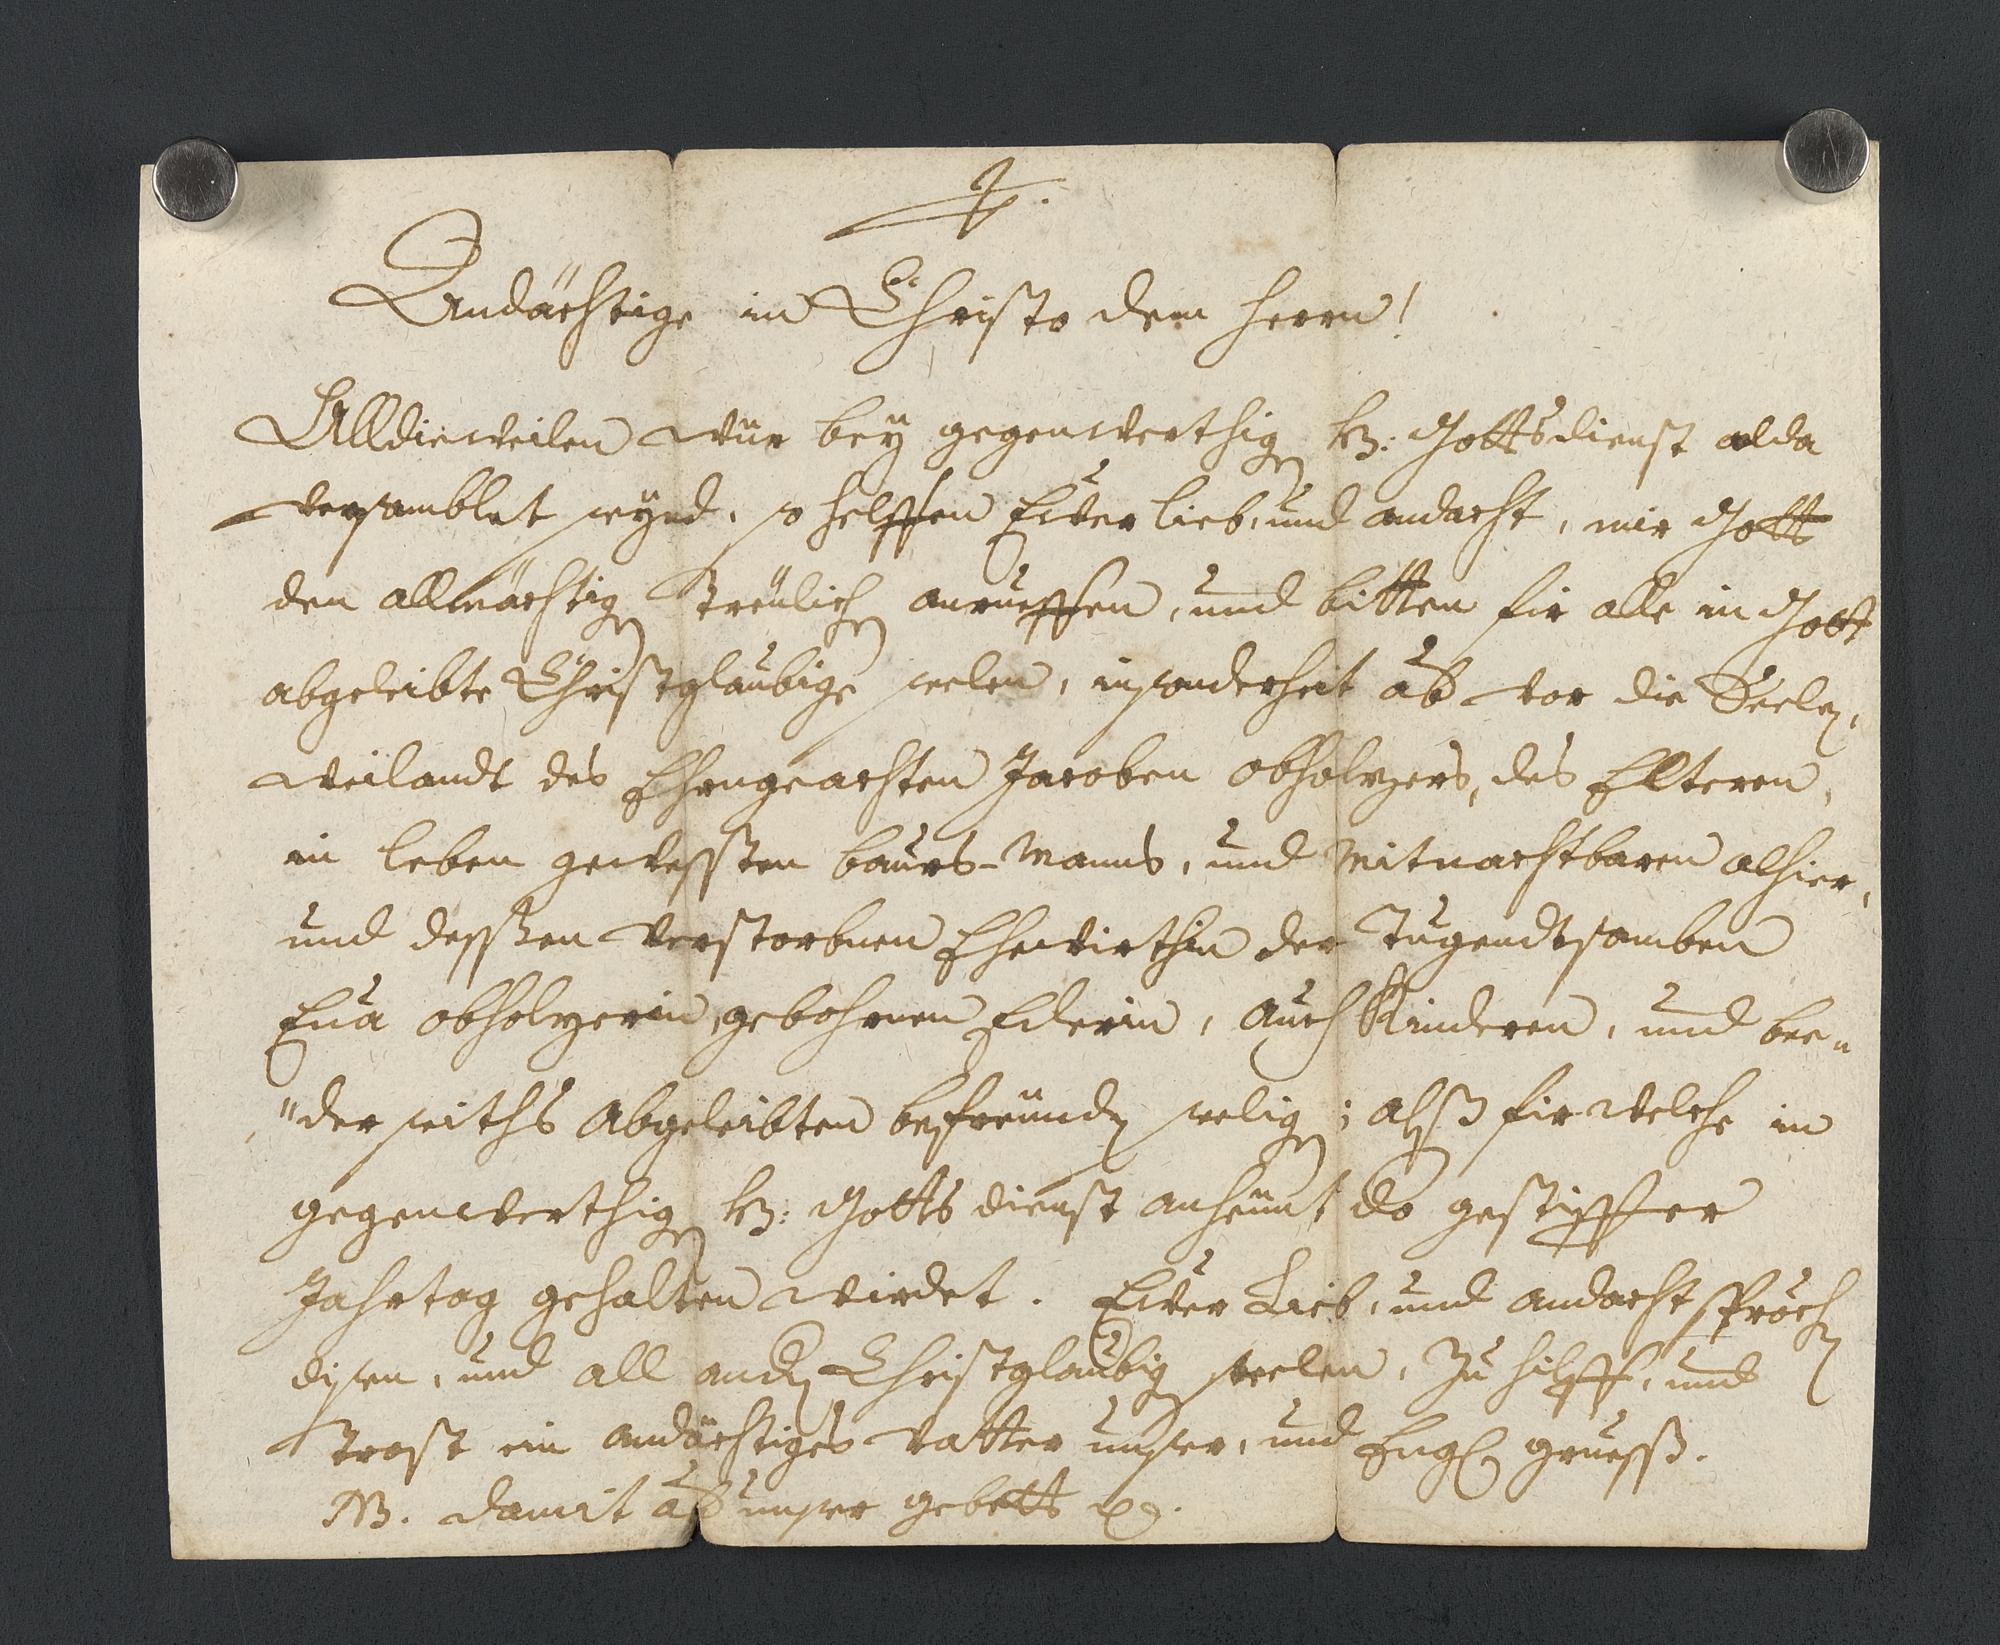 Andächtige in Christo dem Herrn!
Alldieweilen wür bey gegenwerthig h: Gottsdienst alda
versamblet seynd, so helffen Eüer lieb, und andacht, mir Gott
den allmächtig treülich anrueffen, und bitten fir alle in Gott
abgeleibte Christglaubige seelen, insonderheit ab vor die Seelen,
weilandt des Ehrngeachten Jacoben obholzers, des Elteren,
in leben gewessten baurs-Manns, und Mitnachtbaren alhier,
und dessen verstorbnen Ehewirthin der Tugendtsamben
Eua obholzerin, gebohrnen Ederin, auch Kinderen, und bee„
„der seiths abgeleibten befreündten selig; alß fir welche in
gegenwerthig h: Gotts dienst anheünt do gestiffter
Jahrtag gehalten wirdet. Eüer Lieb, und andacht spröchen
disen, und all andn Christglaubig seelen, zu hilff, und
trost ein andächtiges vatter unser, und Engl: gruess.
NB. damit ab unser gebett etc.